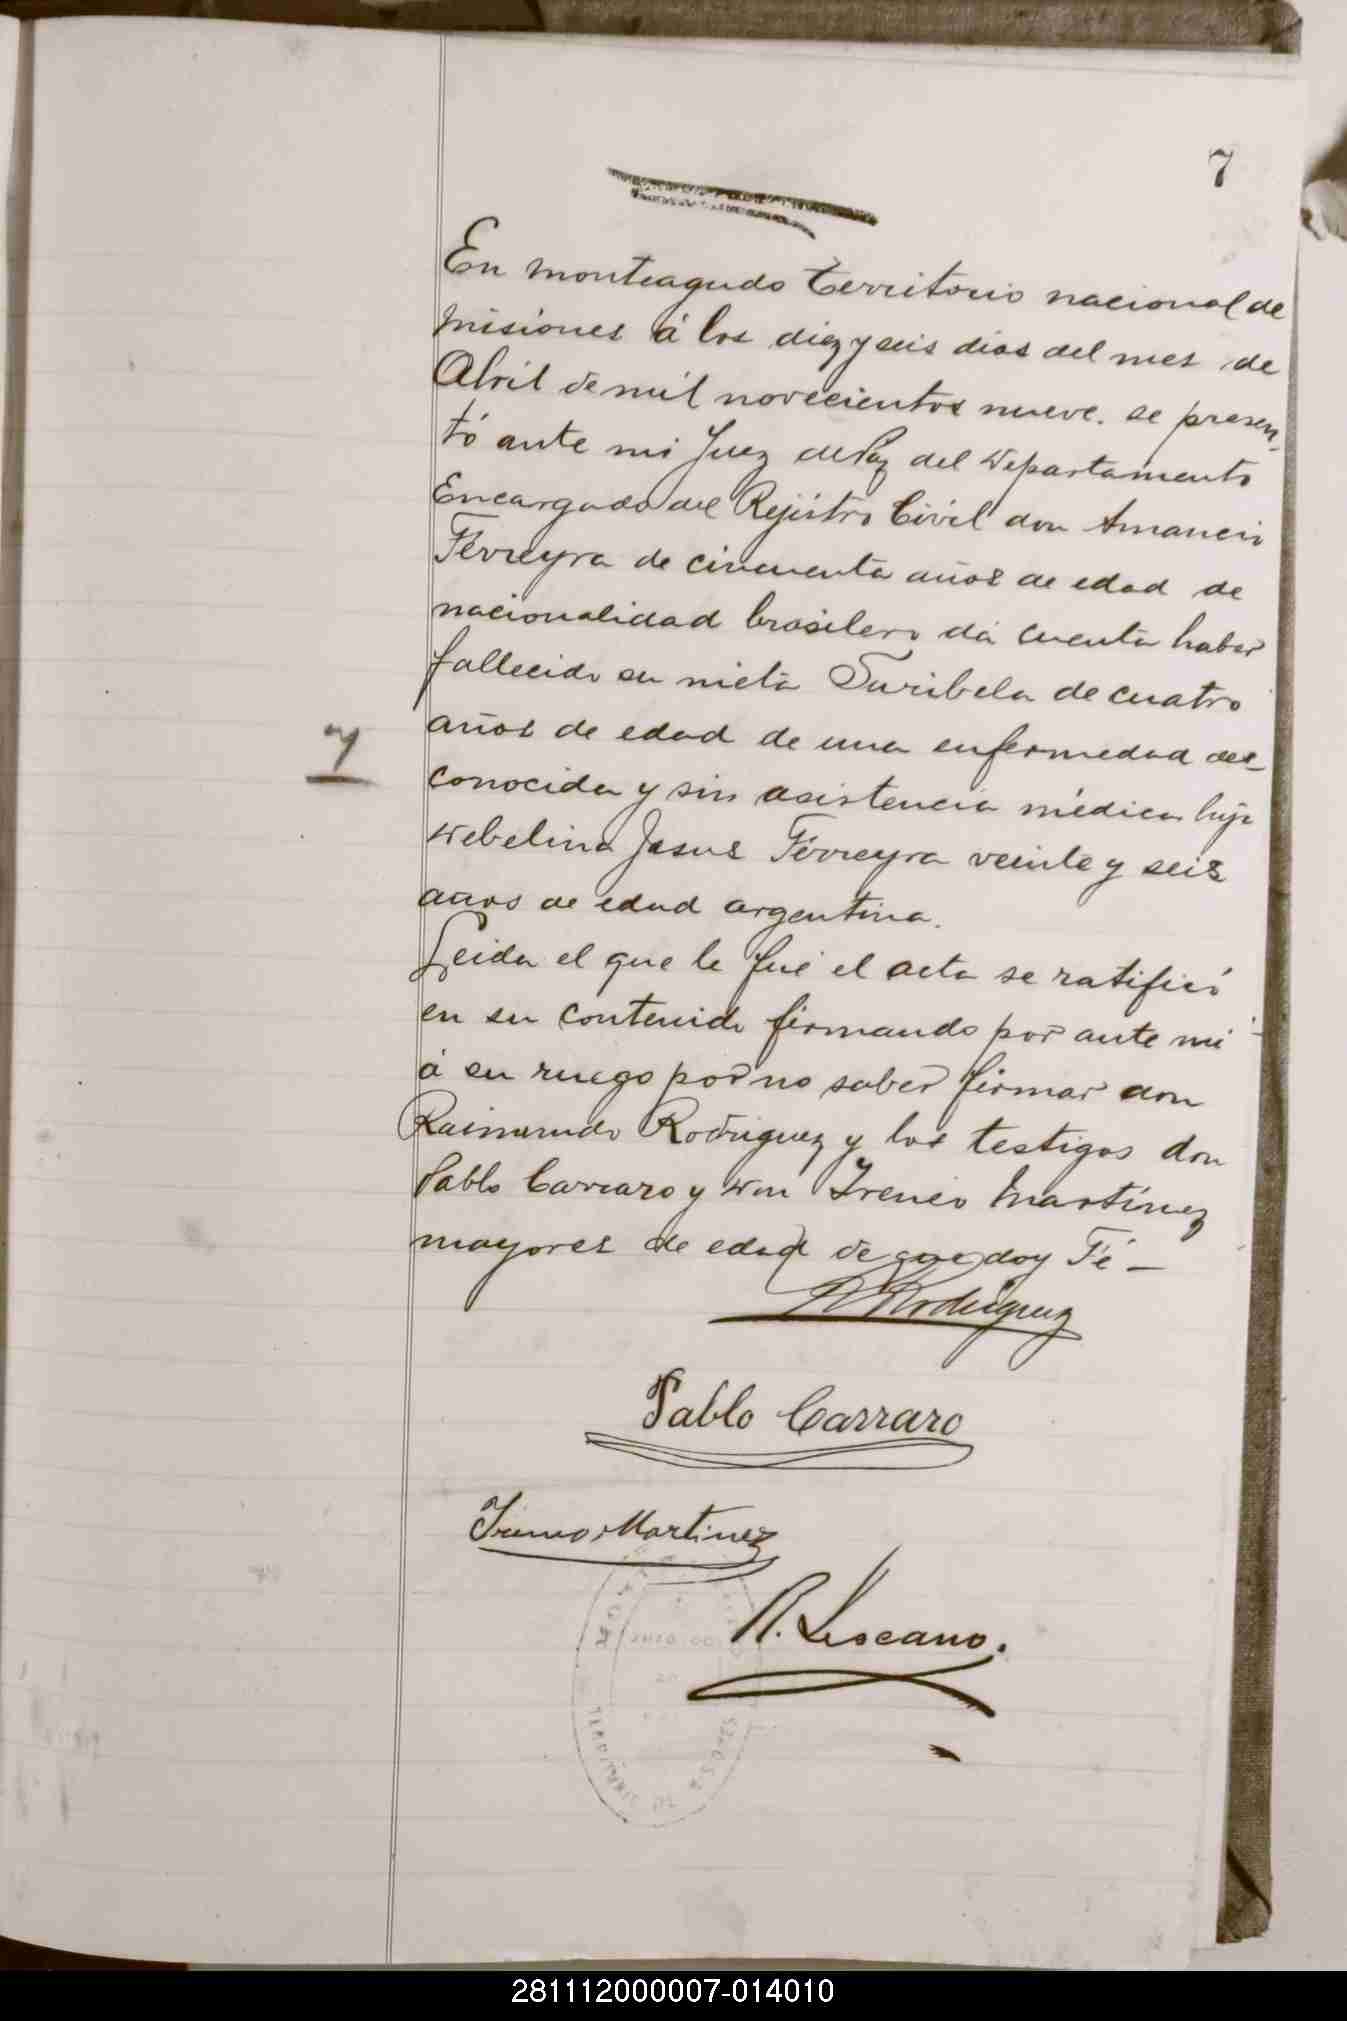 7
En monteagudo territorio nacional de
misiones á los diez y seis dias del mes de
Abril de mil novecientos nueve. se presen-
tó ante mi Juez de Paz del Departamento
Encargado del Rejistro Civil don Amancio
Ferreyra de cincuenta años de edad de
nacionalidad brasilero dá cuenta haber
fallecido su nieta Turibela de cuatro
años de edad de una enfermedad des-
7
conocida y sin asistencia médica hija
Debelina Jesus Ferreyra veinte y seis
años de edad argentina.
Leida el que le fué el acta se ratificó
en su contenido firmando por ante mi
á su ruego por no saber firmar don
Raimundo Rodriguez y los testigos don
Pablo Carraro y Don Ireneo Martínez
mayores de edad de que doy Fé —
R Rodriguez
Pablo Carraro
Ireneo Martinez
R. Lescano.
281112000007-014010